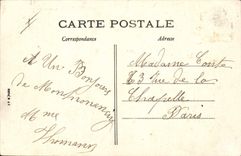 CARTE POSTALE
Correspondance
Adresse
Un Bonjour
de Montmorency
Mme
Thomann
Madame Conte
63 Rue de la
Chapelle
Paris